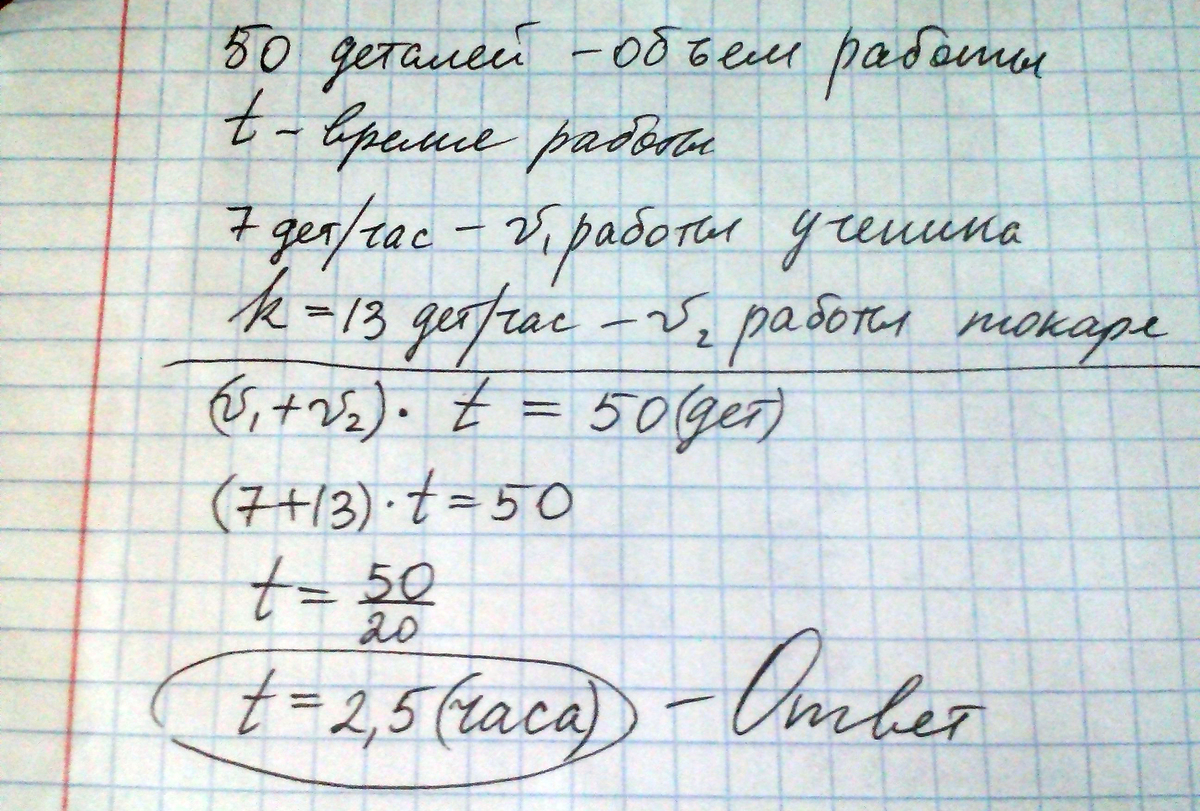 50 деталей – объем работы
t – время работы
7 дет/час – v₁ работы ученика
k = 13 дет/час – v₂ работы токаря
(v₁ + v₂) · t = 50 (дет)
(7+13) · t = 50
t = 50/20
t = 2,5 (часа) – Ответ